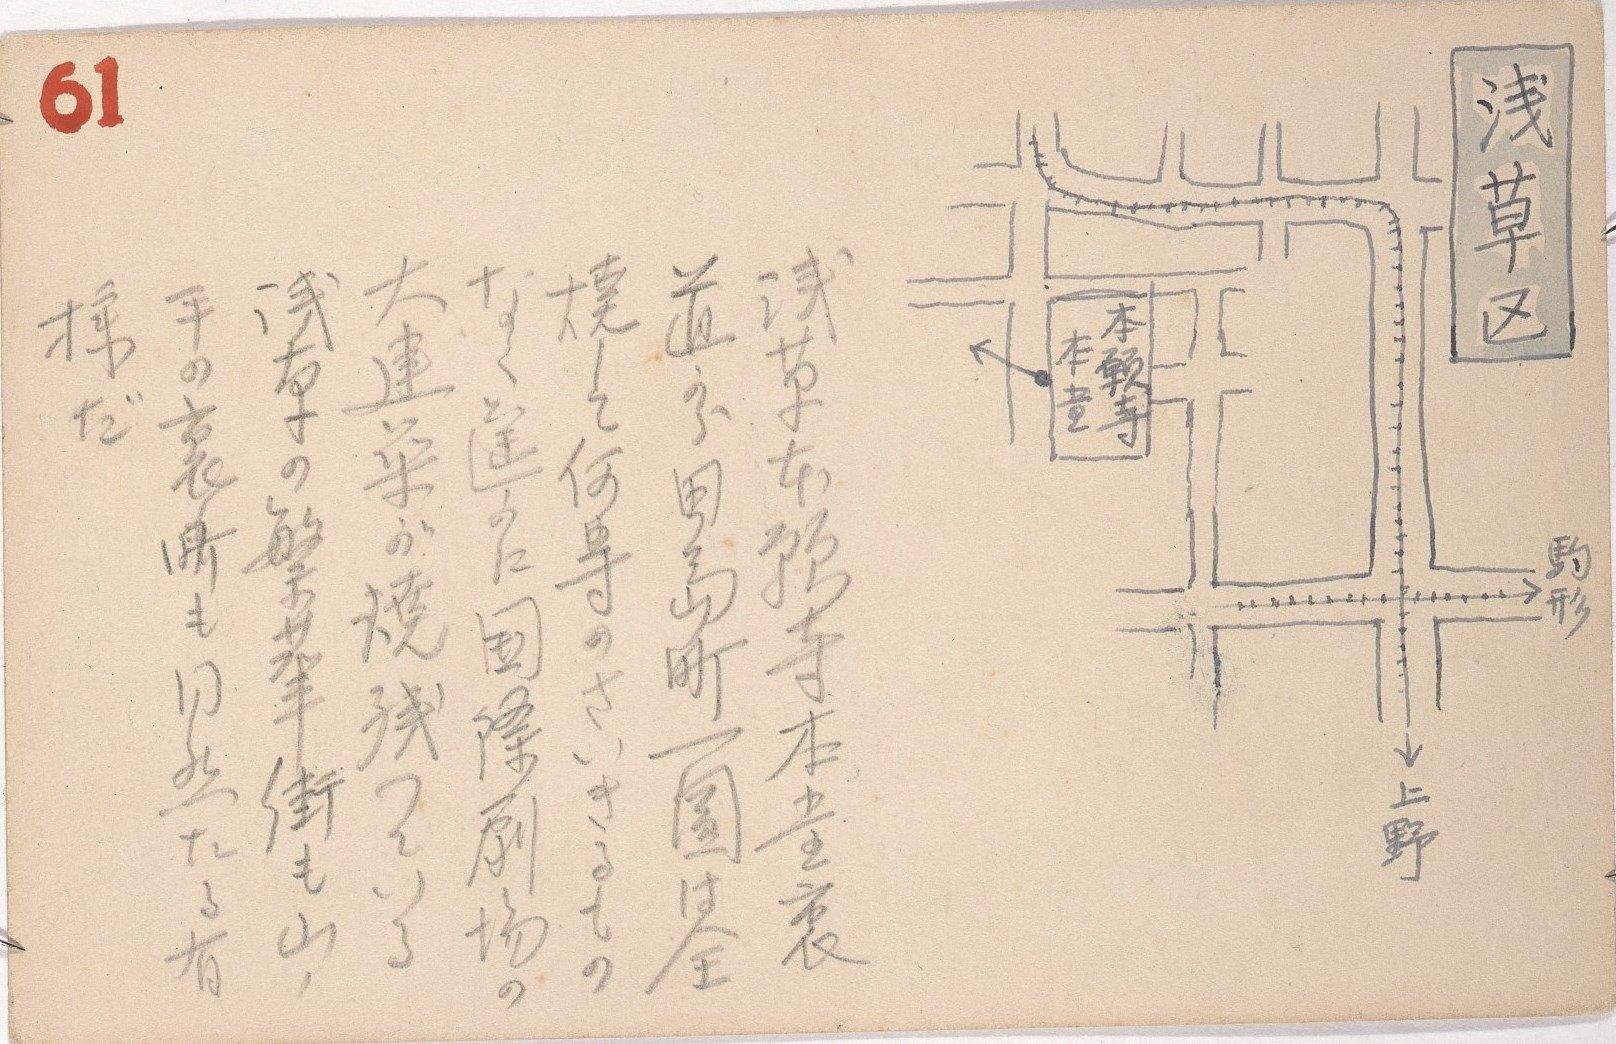 61
浅草区
本願寺
本堂
駒形
上野
浅草本願寺本堂裏
道から田島町一圓は全
焼して何等のさいぎるもの
なく遥かに国際劇場の
大建築が焼残つている
浅草の繁華街も山ノ
手の裏町も同然たる有
様だ